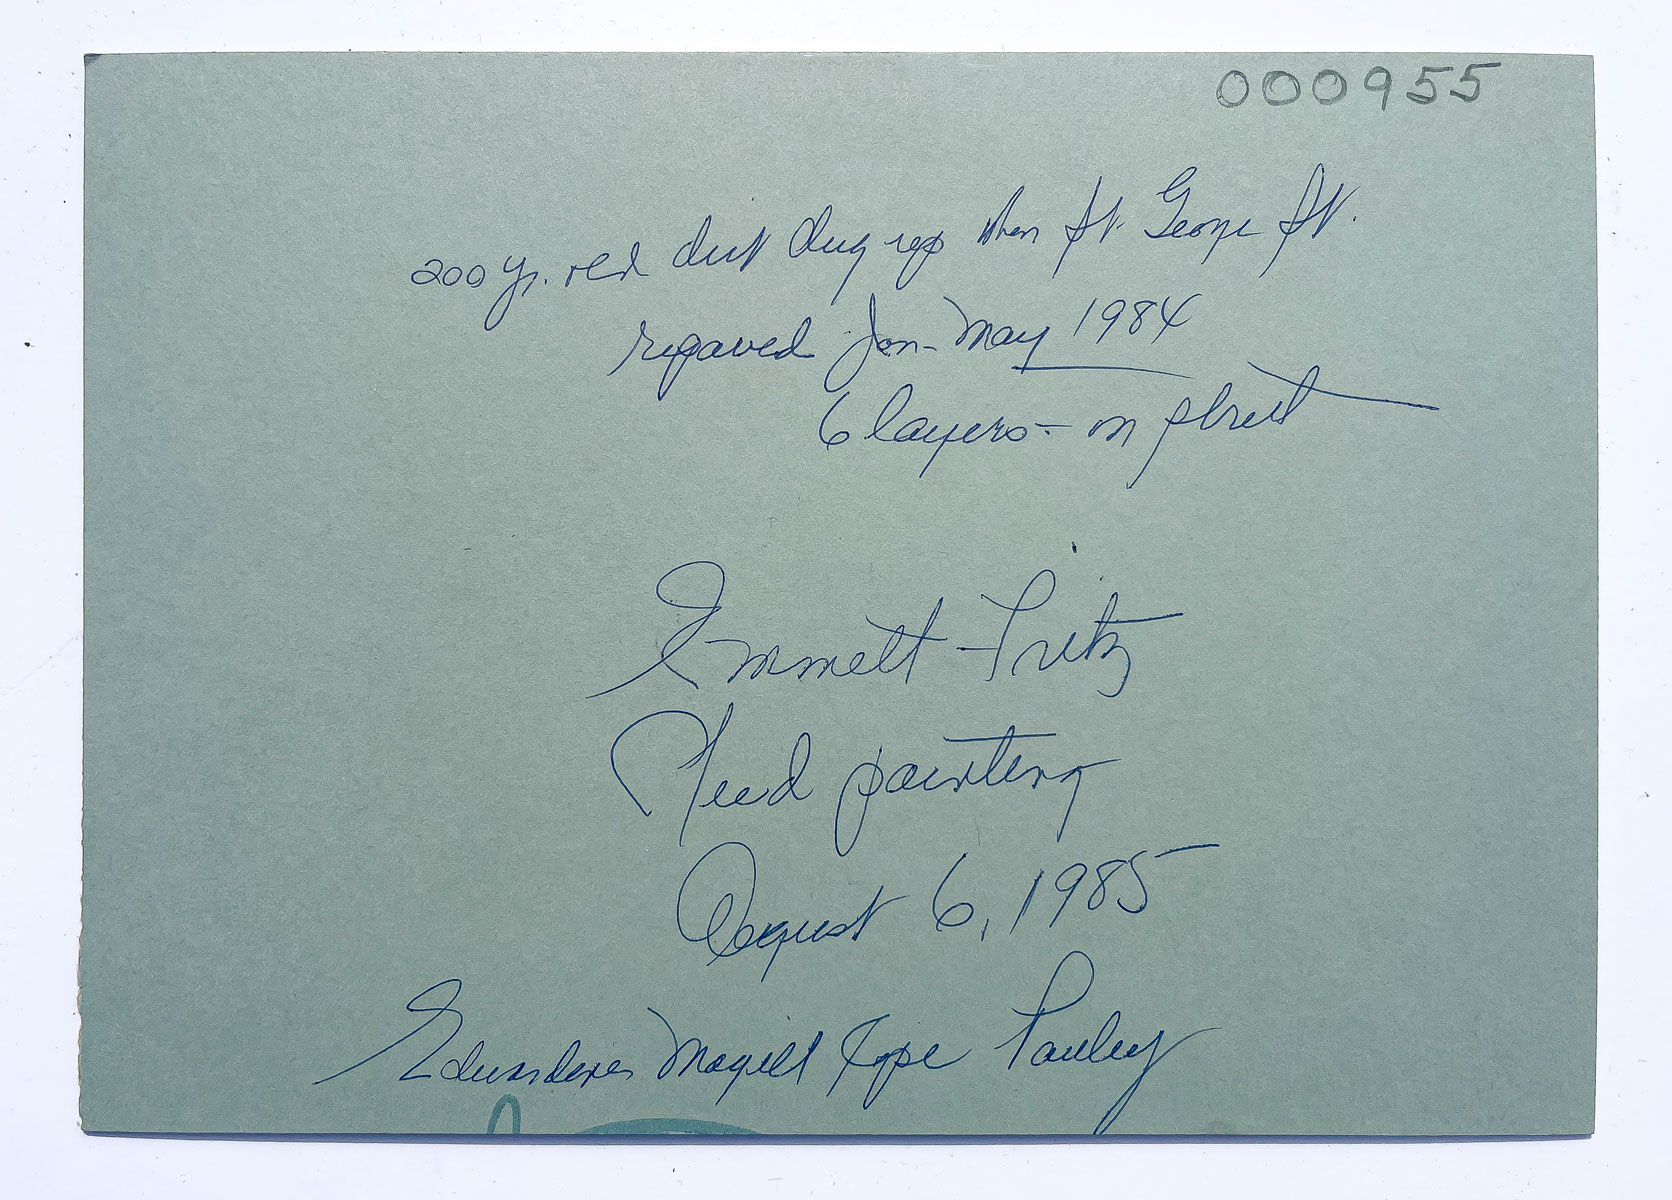 000955
200 yr. red dirt dug up when St. George St.
repaved Jan-May 1984
6 layers - on street
Emmett Fritz
Mud painting
August 6, 1985
Magill Pope Pauley